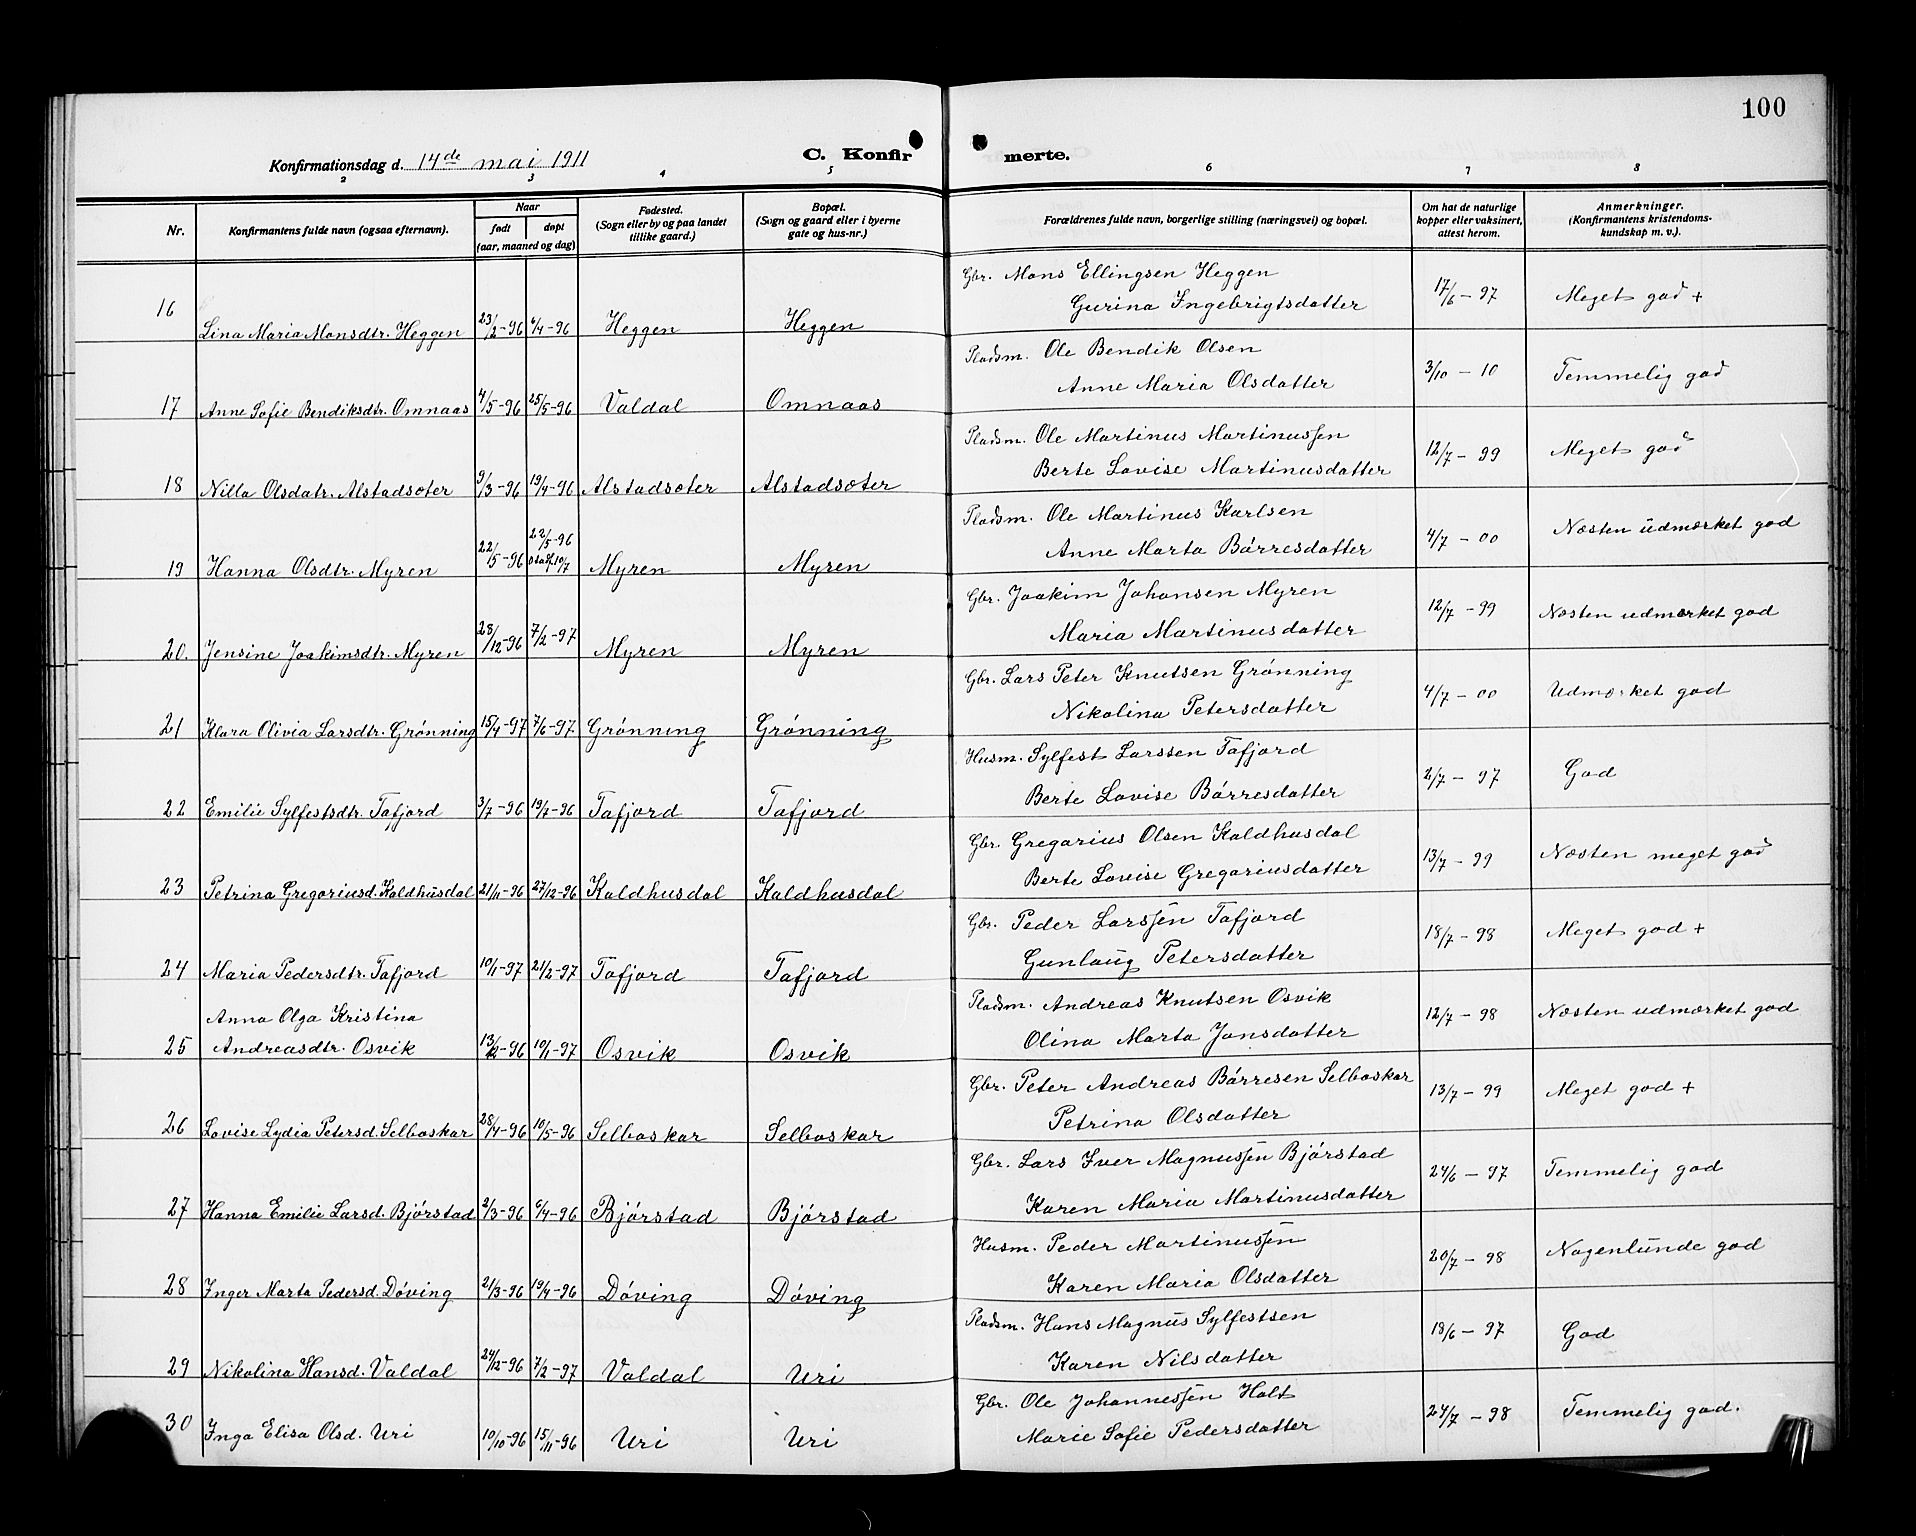 100
Konfirmationsdag d. 14de mai 1911
C. Konfirmerte.
2 3 4 5 6 7 8
Nr.
Konfirmantens fulde navn (ogsaa efternavn).
Naar
født døpt
(aar, maaned og dag)
Fødested.
(Sogn eller by og paa landet
tillike gaard.)
Bopæl.
(Sogn og gaard eller i byerne
gate og hus-nr.)
Forældrenes fulde navn, borgerlige stilling (næringsvei) og bopæl.
Om hat de naturlige
kopper eller vaksinert,
attest herom.
Anmerkninger.
(Konfirmantens kristendoms-
kundskap m. v.).
Gbr. Mons Ellingsen Heggen
Gurina Ingebrigtsdatter
16 Lina Maria Monsdtr. Heggen 23/2-96 6/4-96 Heggen Heggen 17/6-97 Meget god +
Pladsm. Ole Bendik Olsen
Anne Maria Olsdatter
17 Anne Sofie Bendiksdtr. Omnaas 4/5-96 25/5-96 Valdal Omnaas 3/10-10 Temmelig god
Pladsm. Ole Martinus Martinussen
Berte Lovise Martinusdatter
18 Nilla Olsdatr. Alstadsæter 9/3-96 19/4-96 Alstadsæter Alstadsæter 12/7-99 Meget god
Pladsm. Ole Martinus Karlsen
Anne Marta Bórresdatter
19 Hanna Olsdtr. Myren 22/5-96 22/5-96 10/7 Myren Myren 4/7-00 Næsten udmærket god
Gbr. Joakim Johansen Myren
Maria Martinusdatter
20. Jensine Joakimsdtr. Myren 28/12-96 7/2-97 Myren Myren 12/7-99 Næsten udmærket god
Gbr. Lars Peter Knutsen Grónning
Nikolina Petersdatter
21 Klara Olivia Larsdtr. Grónning 15/4-97 7/6-97 Grónning Grónning 4/7-00 Udmærket god
Husm. Sylfest Larssen Tafjord
Berte Lovise Bórresdatter
22 Emilie Sylfestsdtr. Tafjord 3/7-96 19/7-96 Tafjord Tafjord 2/7-97 God
Gbr. Gregorius Olsen Kaldhusdal
Berte Lovise Gregoriusdatter
23 Petrina Gregoriusd. Kaldhusdal 21/11-96 27/12-96 Kaldhusdal Kaldhusdal 13/7-99 Næsten meget god
Gbr. Peder Larssen Tafjord
Gunlaug Petersdatter
24 Maria Pedersdtr. Tafjord 10/1-97 21/2-97 Tafjord Tafjord 18/7-98 Meget god +
Pladsm. Andreas Knutsen Osvik
Olina Marta Jonsdatter
Anna Olga Kristina
25 Andreasdtr. Osvik 13/12-96 10/1-97 Osvik Osvik 12/7-98 Næsten udmærket god
Gbr. Peter Andreas Bórresen Selboskar
Petrina Olsdatter
26 Lovise Lydia Petersd. Selboskar 28/4-96 10/5-96 Selboskar Selboskar 13/7-99 Meget god +
Gbr. Lars Iver Magnussen Bjórstad
Karen Maria Martinusdatter
27 Hanna Emilie Larsd. Bjórstad 2/3-96 6/4-96 Bjórstad Bjórstad 24/6-97 Temmelig god
Husm. Peder Martinussen
Karen Maria Olsdatter
28 Inger Marta Pedersd. Dóving 21/3-96 19/4-96 Dóving Dóving 20/7-98 Nogenlunde god
Pladsm. Hans Magnus Sylfestsen
Karen Nilsdatter
29 Nikolina Hansd. Valdal 24/12-96 7/2-97 Valdal Uri 18/6-97 God
Gbr. Ole Johannessen Holt
Marie Sofie Pedersdatter
30 Inga Elisa Olsd. Uri 10/10-96 15/11-96 Uri Uri 24/7-98 Temmelig god.